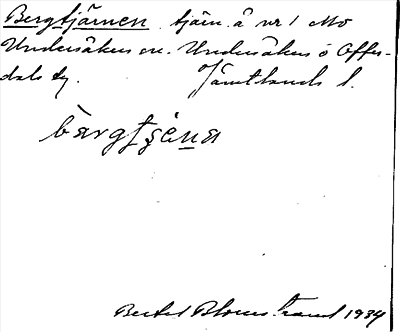 Bergtjärnen tjärn å nr 1 Mo
Undersåkers sn. Undersåkers o Offer-
dals tg. Jämtlands l.
bärgtjɛ̀na
Bertel Blomstrand 1934